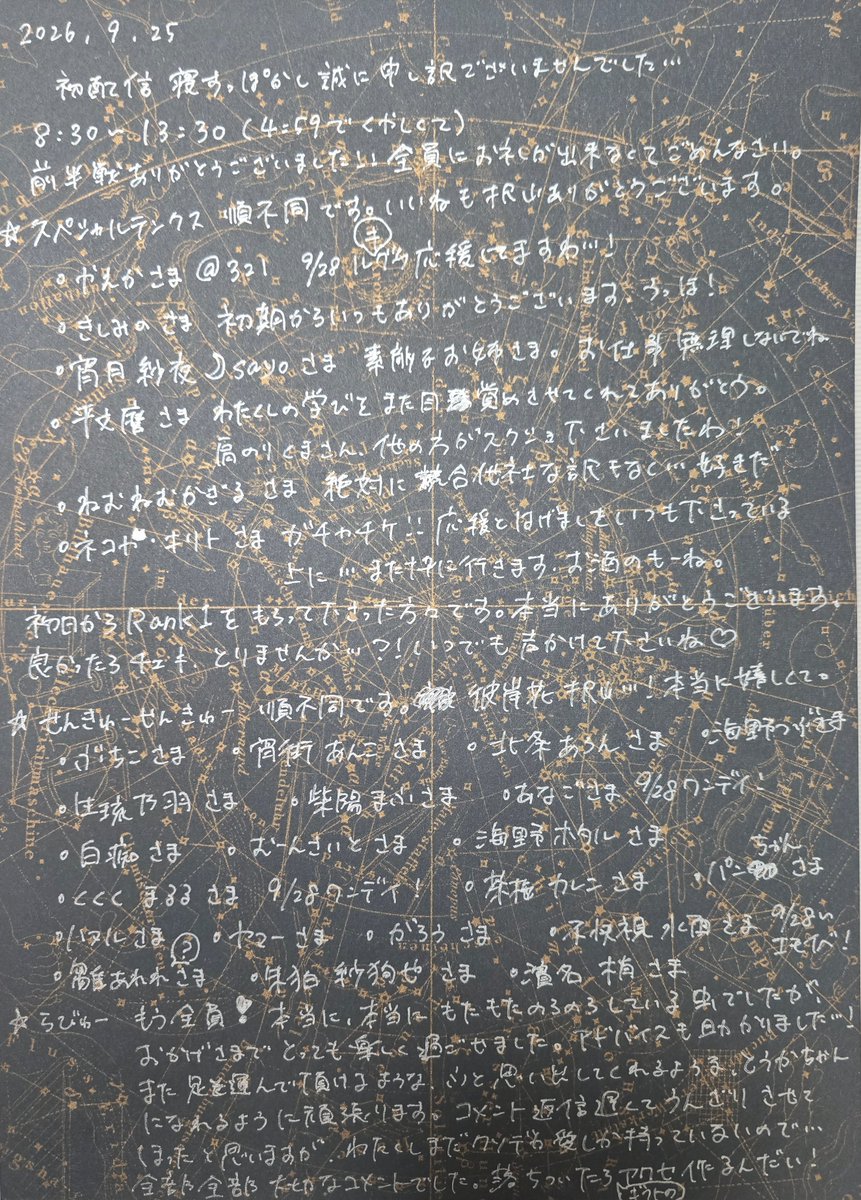 2026.9.25
初配信 寝すっぽかし誠に申し訳でございませんでした…
8:30〜13:30(4:59でくやしくて)
前半戦ありがとうございました!!全員にお礼が出来なくてごめんなさい。
☆スペシャルテンクス 順不同です。いいねも沢山ありがとうございます。
・かえかさま @321 9/28 応援してますわ…!
・きしみのさま 初期からいつもありがとうございます、うっほ!
・宵月紗夜☽sayoさま 素敵なお姉さま。お仕事無理しないでね
・平文麿さま わたくしの学びをまた目覚めさせてくれてありがとう。
高のりくまさん、他の方がスクショ下さいましたわ!
・ねむねむかぎるさま 絶対に な訳もなく… 好まだ
・ネコヤ・キリトさま ガチャチケ!!応援とはげましをいつも下さっている
上に…また に行きます。お酒のもーね。
初日からRank1をもらって下さった方々です。本当にありがとうございます。
良かったらチェキ、とりませんか…?!いつでも声かけて下さいね♡
☆せんきゅーせんきゅー 順不同です。彼岸花沢山…!本当に嬉しくて。
・ぶちこさま ・宵街あんこさま ・北条あろんさま ・海野つげさま
・ 琉乃羽さま ・柴陽まふさま ・あなごさま 9/28ワンデイ!
・白痴さま ・むーんさいとさま ・海野ホタルさま
・くくくまるるさま 9/28ワンデイ! ・ カレンさま ・パンちゃんさま
・パヌルさま ・ヤマーさま ・がろうさま ・ 水雨さま 9/28い
・雛あれれさま(?) ・朱狛紗狗也さま ・濱名梢さま
☆らびゅー もう全員!本当に、本当にもたもたのろのろしている虫でしたが、
おかげさまでとっても楽しく過ごせました。アドバイスも助かりました…!
また足を運んで頂けるような、ふと思い出してくれるようま、とうかちゃん
になれるように頑張ります。コメント返信遅くてうんざりさせて
しまったと思いますが、わたくしまだワンデも愛しか持っていないので…
全部全部大切なコメントでした。落ちついたらアクセ作るんだい!